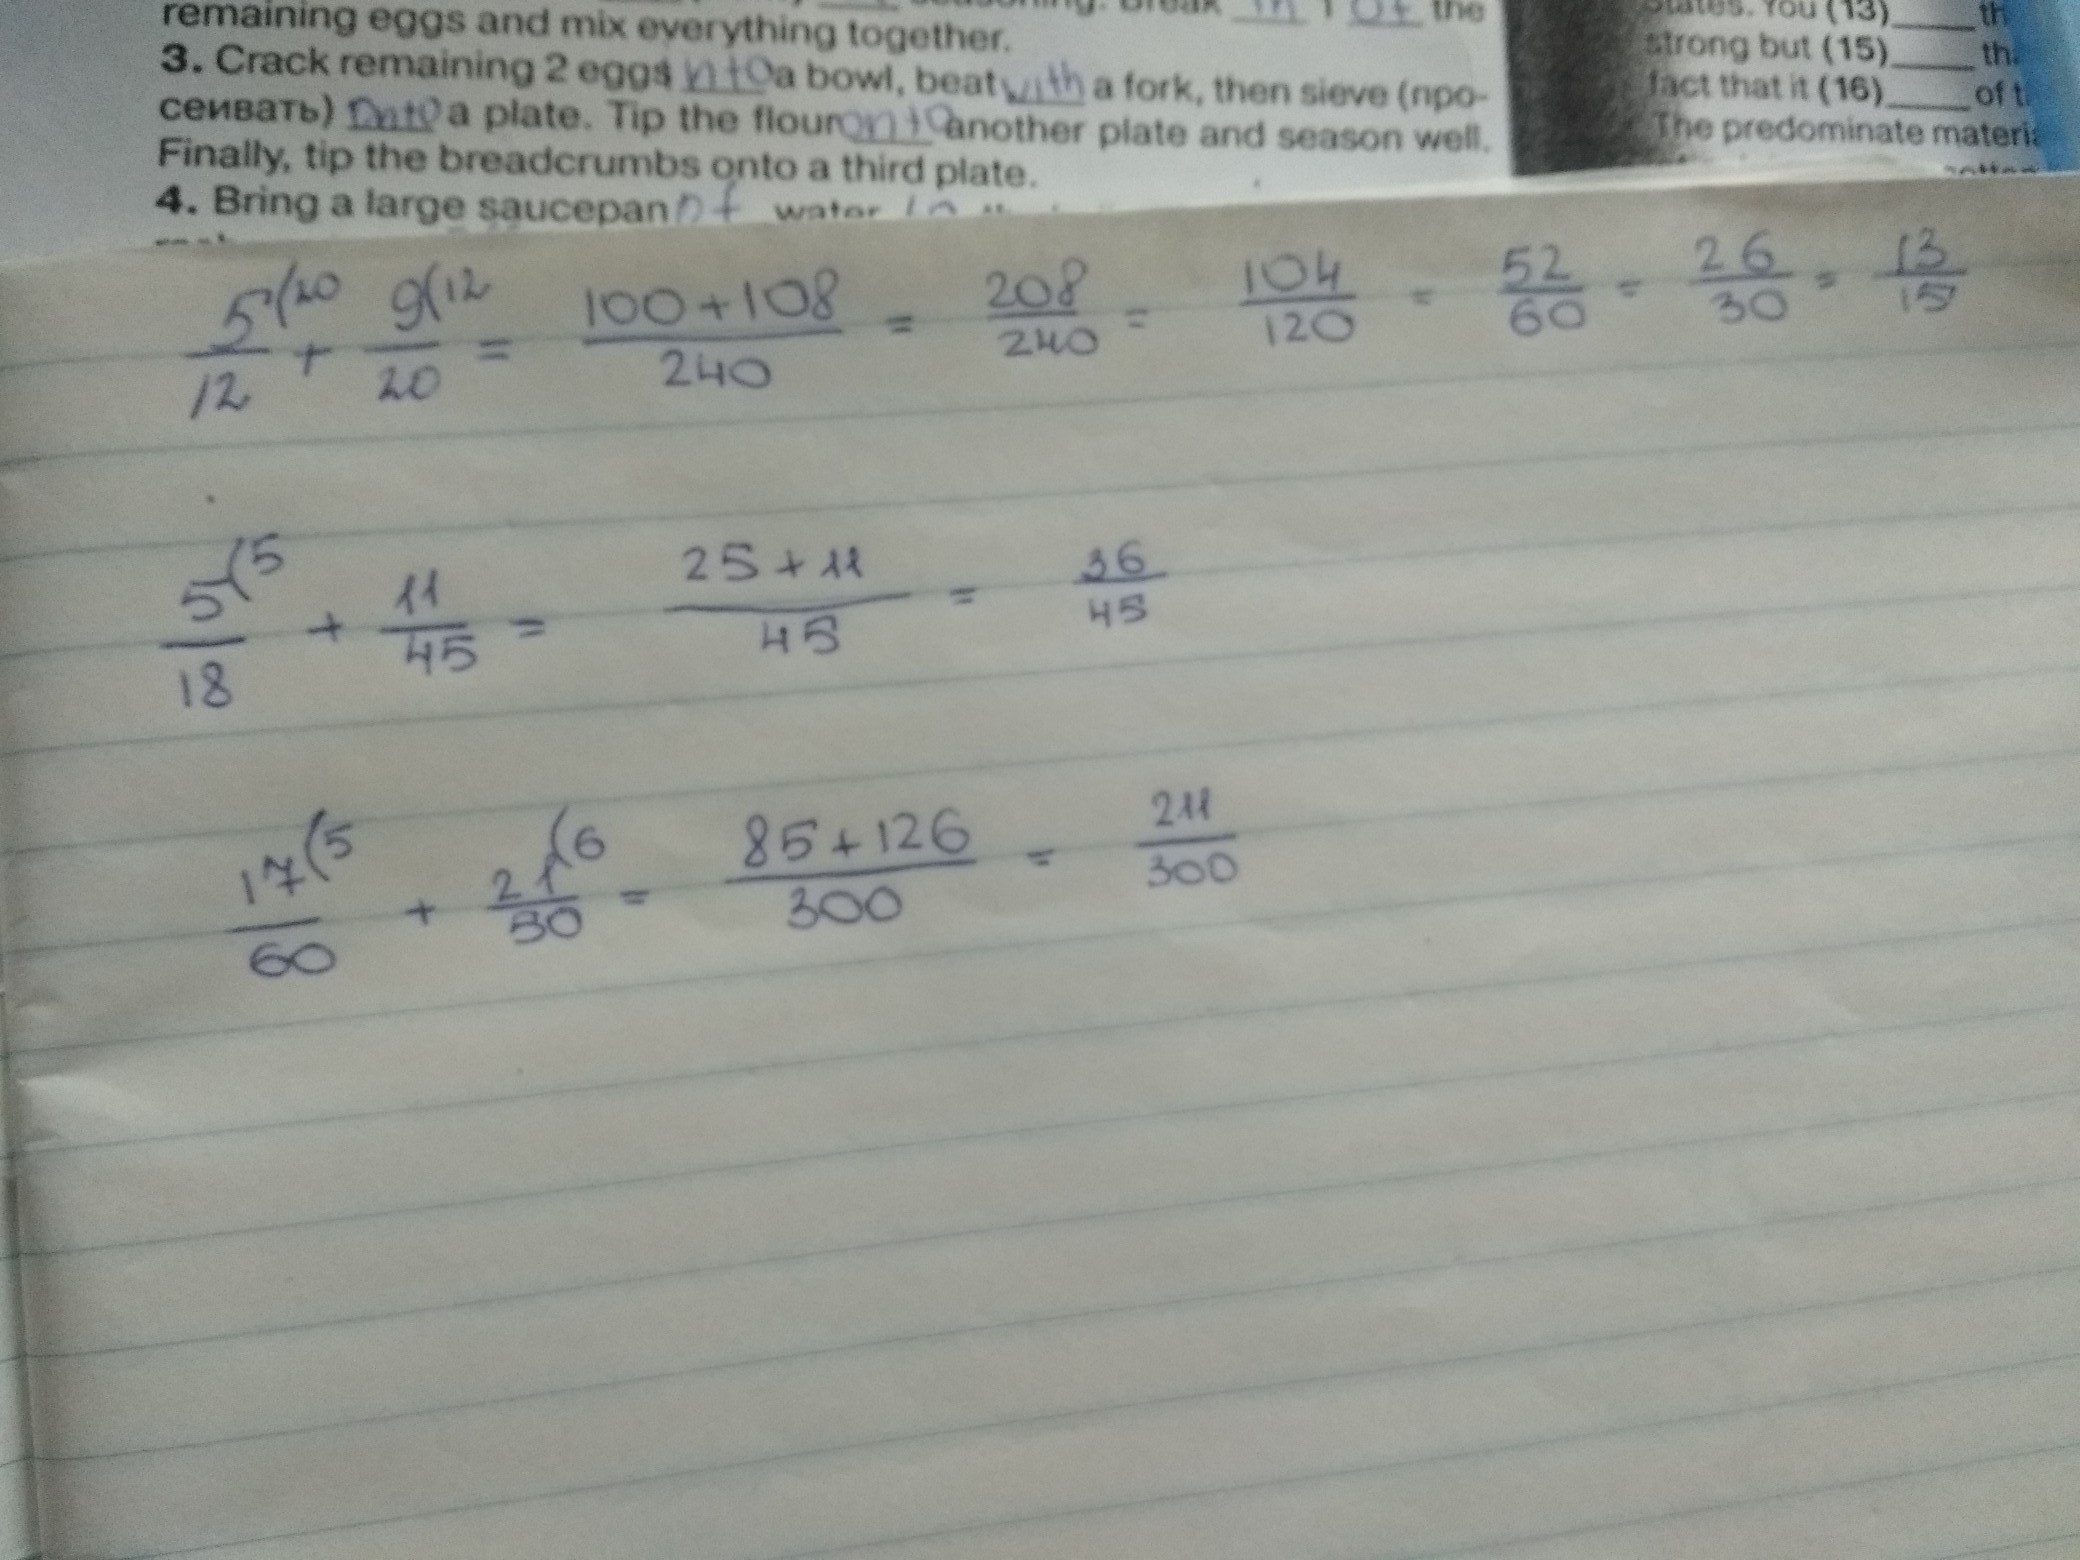 remaining eggs and mix everything together.
3. Crack remaining 2 eggs into a bowl, beat with a fork, then sieve (про-
сеивать) onto a plate. Tip the flour onto another plate and season well.
Finally, tip the breadcrumbs onto a third plate.
4. Bring a large saucepan of water to
States. You (13)____ th
strong but (15)____ th
fact that it (16)____ of t
The predominate materi
5(20/12 + 9(12/20 = 100+108/240 = 208/240 = 104/120 = 52/60 = 26/30 = 13/15
5(5/18 + 11/45 = 25+11/45 = 36/45
17(5/60 + 21(6/50 = 85+126/300 = 211/300